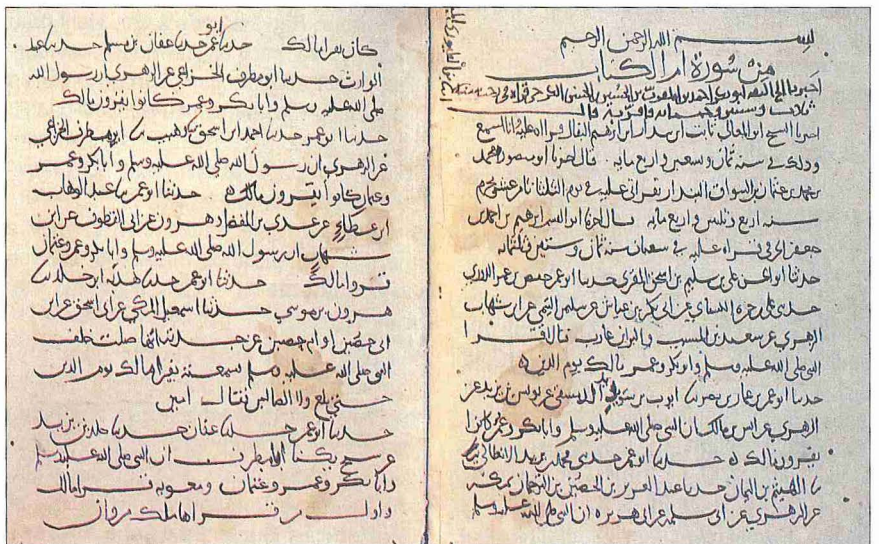 بسم الله الرحمن الرحيم
من سورة ام الكتاب
ثلاث وستين وخمس مائة
اخبرنا الشيخ ابو المعالي ثابت بن بندار بن ابرهيم البقال قراه عليه وانا اسمع
وذلك في سنة ثمان وتسعين واربع مايه قال اخبرنا ابو منصور محمد
بن محمد بن عثمان بن السواق البندار بقراتي عليه في يوم الثلثا
سنه اربع وثلثين واربع مايه قال اخبرنا ابرهيم بن احمد بن
جعفر الخرقي قراه عليه في شعبان سنه ثمان وستين وثلثمايه
حدثنا ابو الحسن علي بن سليم بن اسحق المقرئ حدثنا ابو عمر حفص بن عمر الدوري
حدثني علي بن حمزه الكسائي عن ابي بكر بن عياش عن سليمن التيمي عن ابن شهاب
الزهري عن سعيد بن المسيب والبراء بن عازب قالا قرا
النبي صلى الله عليه وسلم وابو بكر وعمر مالك يوم الدين ه
حدثنا ابو عمر بن عمار بن نصر نا ايوب بن سويد عن يونس بن يزيد عن
الزهري عن انس بن مالك ان النبي صلى الله عليه وسلم وابا بكر وعمر كانوا
يقرون مالك ه حدثنا ابو عمر حدثني محمد بن
نا الهيثم بن اليمان حدثنا عبد العزيز بن الحصين بن الترجمان
عن الزهري عن ابي سلمه عن ابي هريره ان النبي صلى الله عليه وسلم
ابو
كان يقرا مالك حدثنا عمر حدثنا عفان بن مسلم حدثنا عبد
الوارث حدثنا ابو مطرف الخزاعي عن الزهري ان رسول الله
صلى الله عليه وسلم وابا بكر وعمر كانوا يقرون مالك
حدثنا ابو عمر حدثنا احمد بن اسحق نا وهيب نا ابو مطرف الخزاعي
عن الزهري ان رسول الله صلى الله عليه وسلم وابا بكر وعمر
وعثمان كانوا يقرون مالك ه حدثنا ابو عمر نا عبد الوهاب
ابن عطاء عن عدي بن الفضل وهرون عن ابي المطرف عن ابن
شهاب ان رسول الله صلى الله عليه وسلم وابا بكر وعمر وعثمان
قروا مالك حدثنا ابو عمر حدثنا هدبه ابن خلد نا
هرون بن موسى حدثنا اسمعيل المكي عن ابي اسحق عن ابن
ابي حصين او ام حصين عن جدته انها صلت خلف
النبي صلى الله عليه وسلم سمعته يقرا مالك يوم الدين
حتى بلغ ولا الضالين فقال امين
حدثنا ابو عمر حدثنا عثمان حدثنا خلد بن يزيد
عن شيخ يكنا ابا مطرف ان النبي صلى الله عليه وسلم
وابا بكر وعمر وعثمان ومعويه قروا مالك
واول من قراها ملك مروان